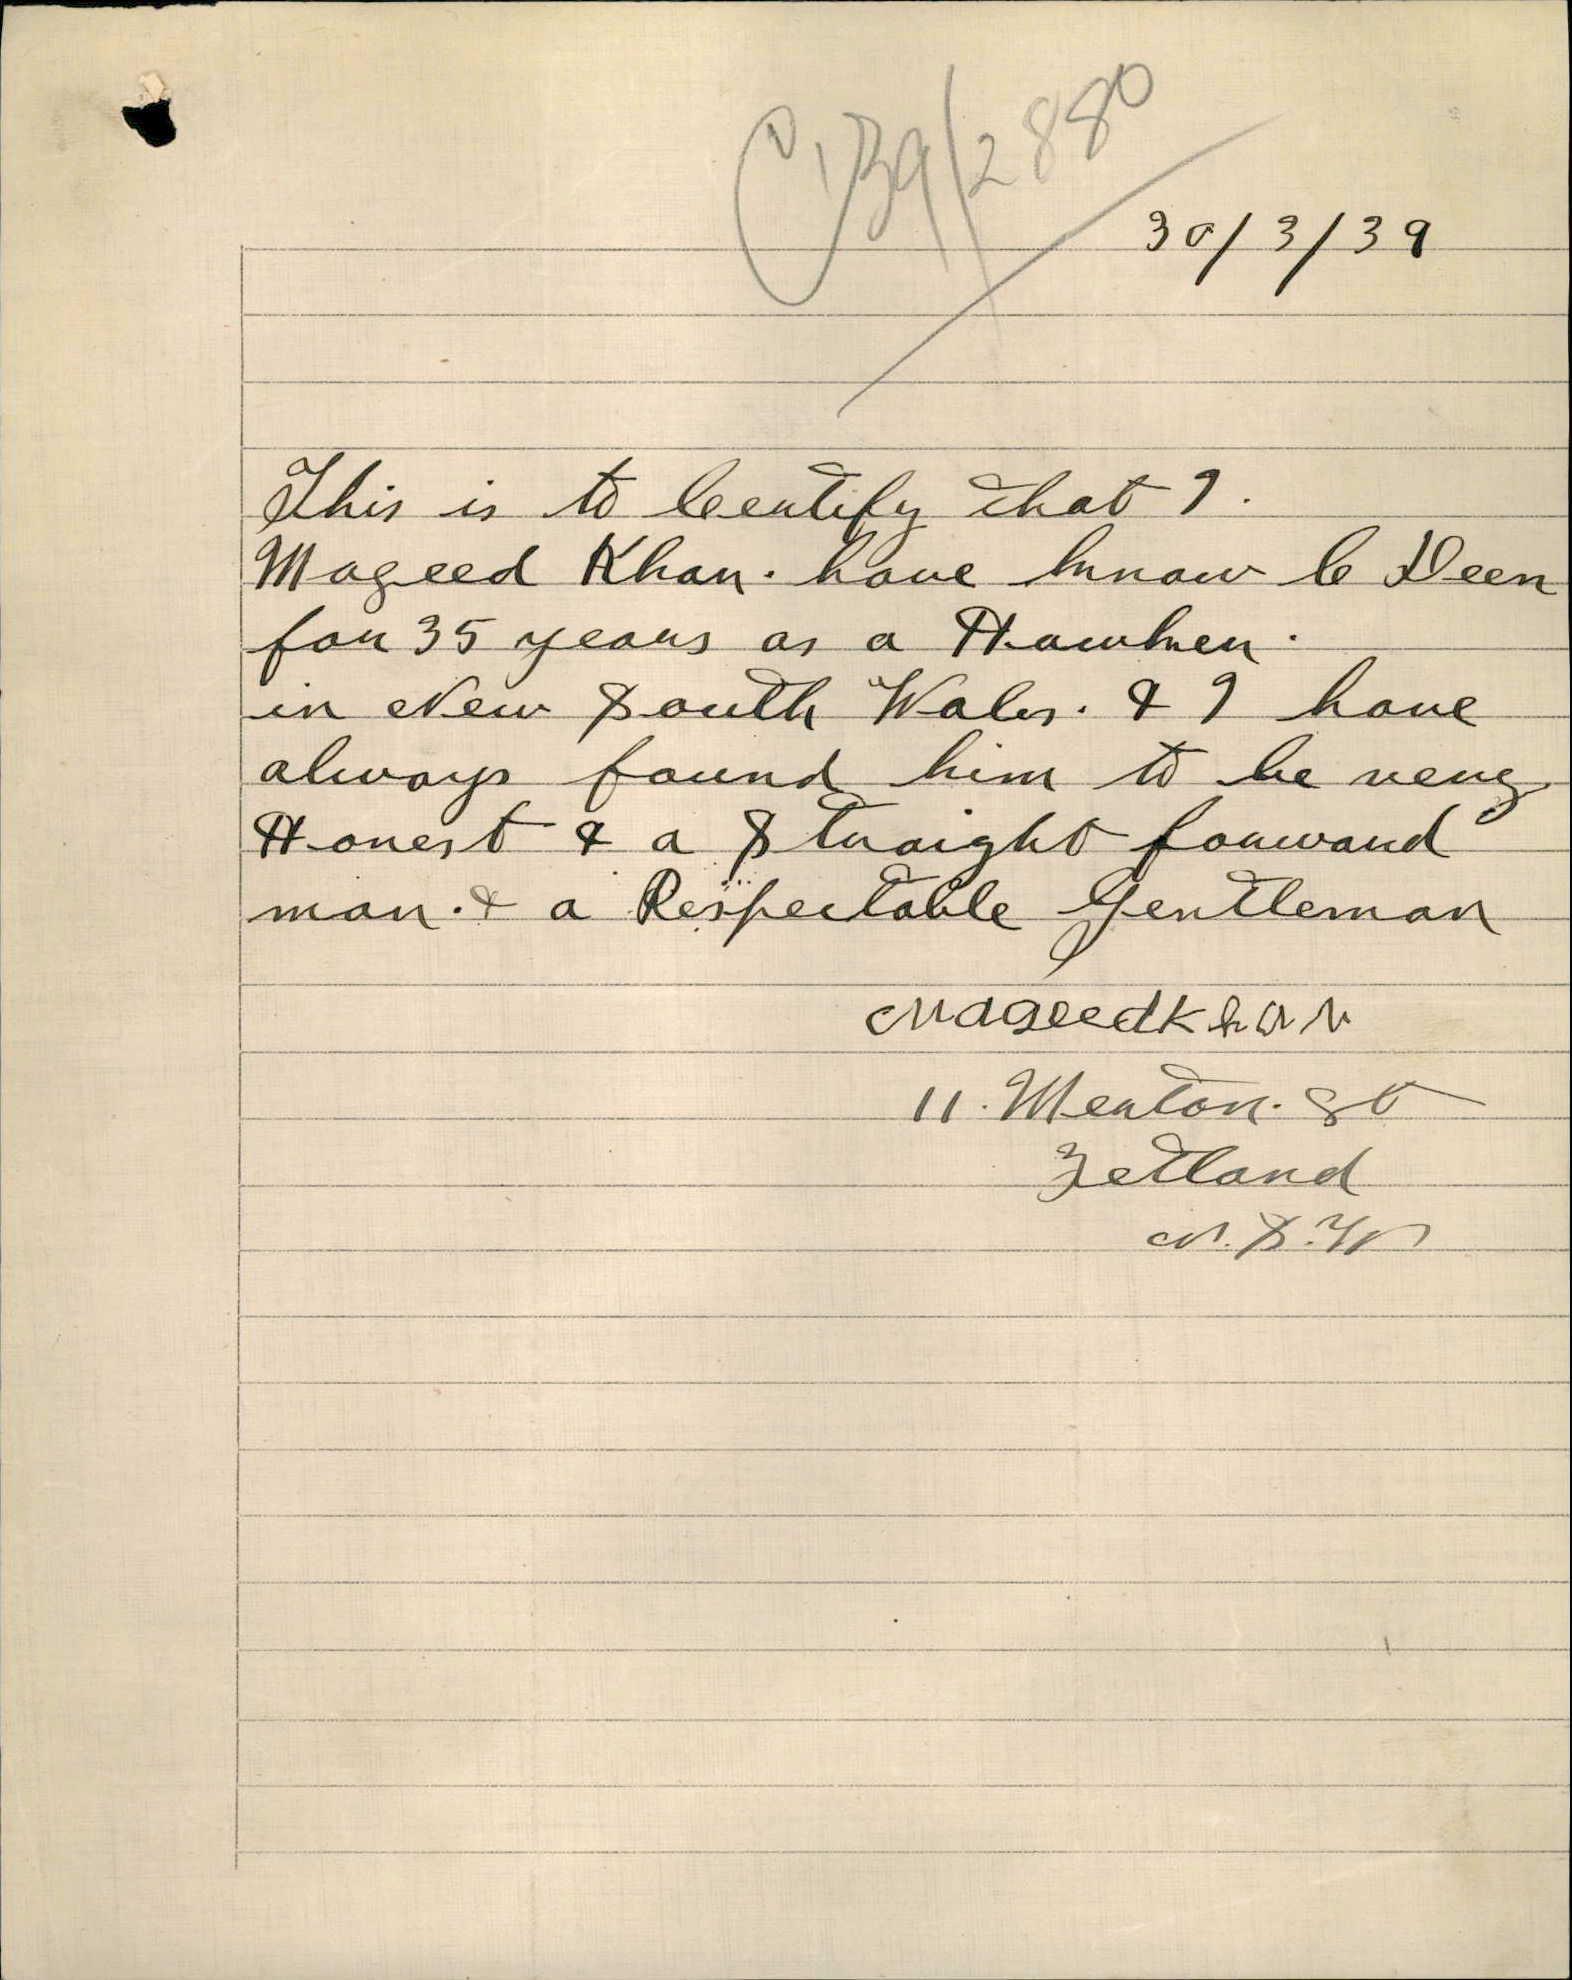 C 39/2880
30/3/39
This is to Certify that I.
Mageed Khan. have know C Deen
for 35 years as a Hawker.
in New South Wales. & I have
always found him to be very
Honest & a Straight forward
man. & a Respectable Gentleman
Mageed Khan
11. Merton. St
Zetland
N.S.W